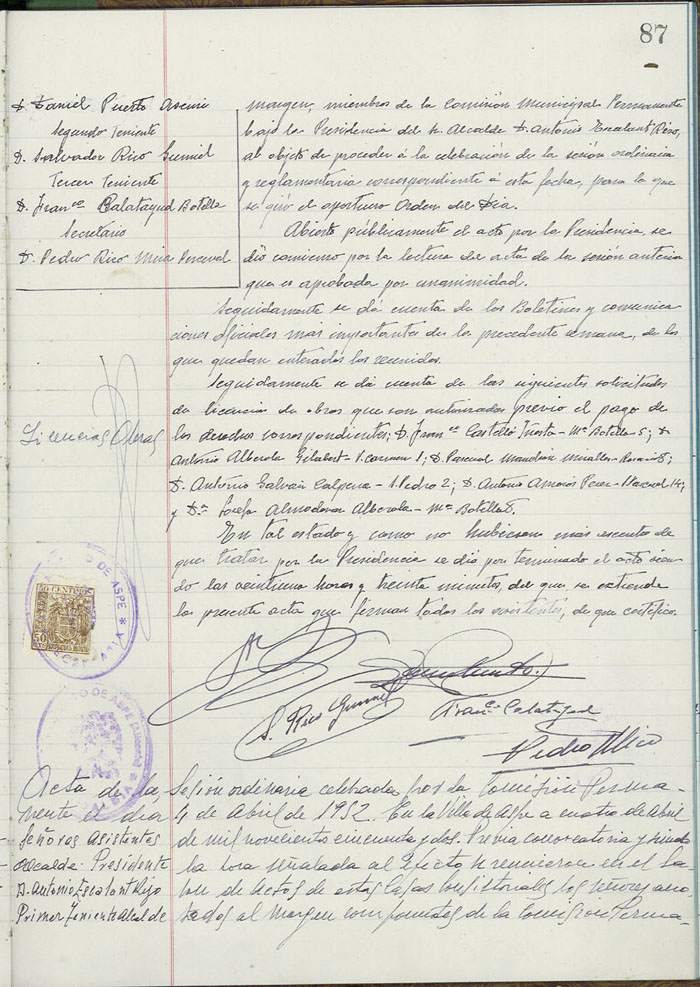 87
D. Daniel Puerto
Segundo Teniente
D. Salvador Rico Gumiel
Tercer Teniente
D. Franco Calatayud Botella
Secretario
D. Pedro Rico Mira Perceval
margen, miembros de la Comisión Municipal Permanente
bajo la Presidencia del Sr. Alcalde D. Antonio
al objeto de proceder á la celebración de la sesión ordinaria
y reglamentaria correspondiente á esta fecha, para la que
se giró el oportuno Orden del Día.
Abierto públicamente el acto por la Presidencia, se
dio comienzo por la lectura del acta de la sesión anterior
que es aprobada por unanimidad.
Seguidamente se dá cuenta de los Boletines y comunica
ciones oficiales mas importantes de la precedente semana, de los
que quedan enterados los reunidos.
Licencias Obras
Seguidamente se dá cuenta de las siguientes solicitudes
de licencia de obras que son autorizadas previo el pago
de los derechos correspondientes; D. Franco Castelló - Mª Botella 5; D.
Antonio Alberola Gilabert - V. Carmen 1; D. Pascual Miralles
D. Antonio Galván Calpena - S. Pedro 2; D. Antonio Amorós
y Dª Josefa Almodovar Alberola - Mª Botella
En tal estado y como no hubiesen más asuntos de
que tratar por la Presidencia se dio por terminado el acto sien-
do las veintiuna horas y treinta minutos, del que se extiende
la presente acta que firman todos los asistentes, de que certifico.
50 CENTIMOS
DE ASPE
S. Rico Gumiel
Franco Calatayud
Pedro Rico
DE ASPE
Acta de la Sesión ordinaria celebrada por la Comisión Perma-
nente el día 4 de Abril de 1952. En la Villa de Aspe a cuatro de Abril
Señores Asistentes
de mil novecientos cincuenta y dos. Previa convocatoria y siendo
Alcalde Presidente
la hora señalada al efecto se reunieron en el Sa-
D. Antonio
lon de Actos de estas Casas Consistoriales los señores ano-
Primer Teniente Alcalde
tados al margen componentes de la Comisión Perma-